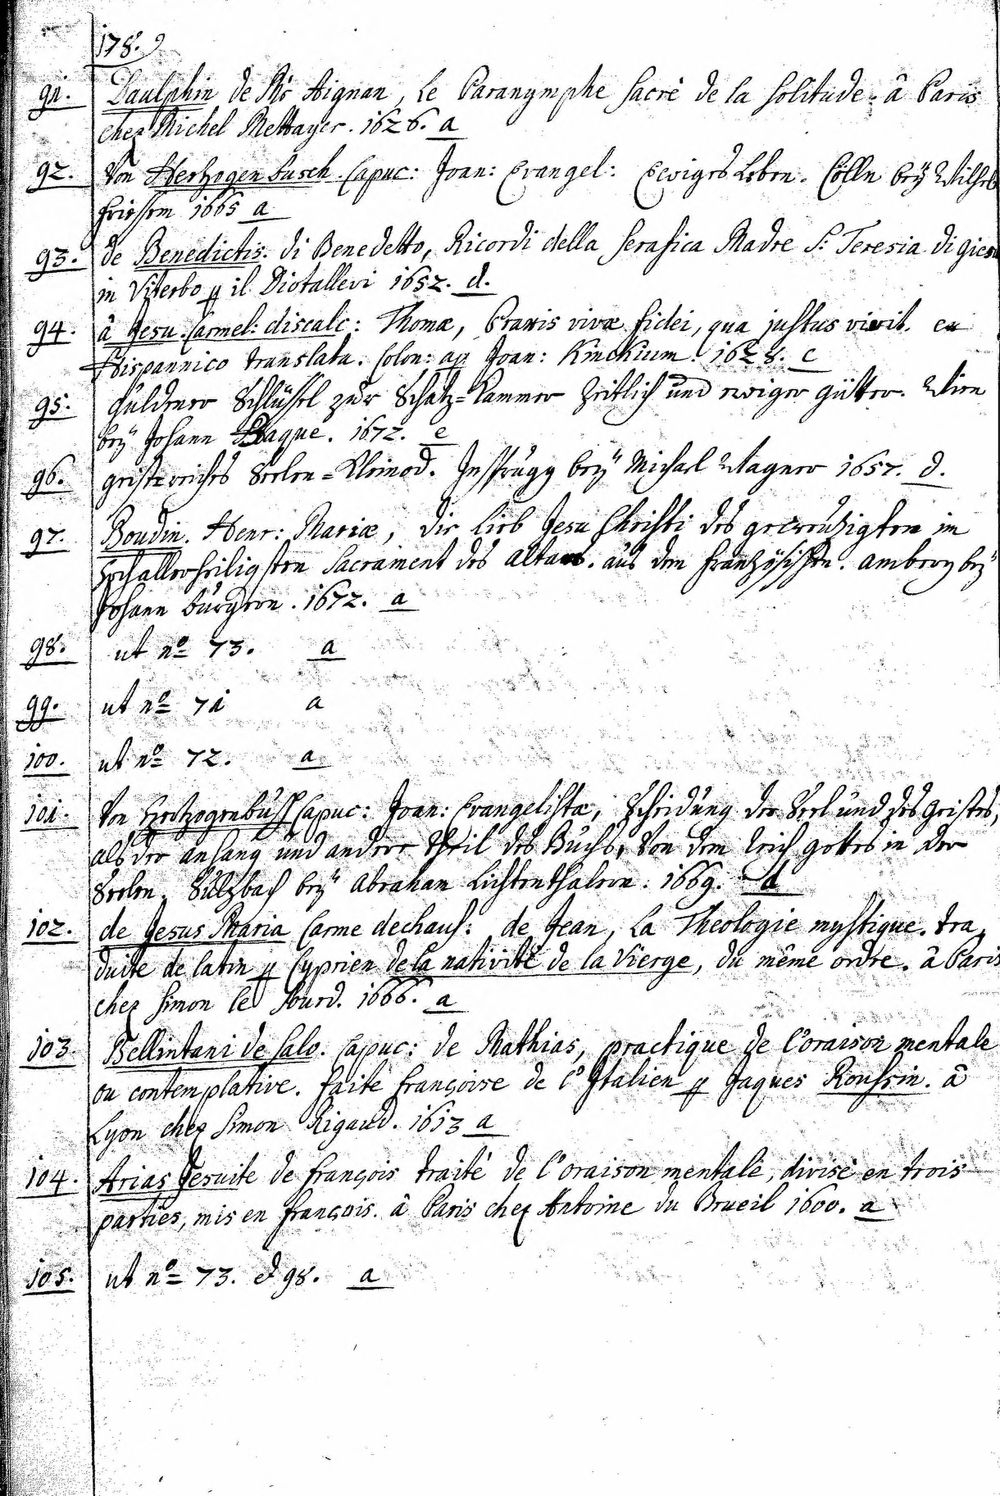 178.
91. Daulphin de St Aignan, Le Paranymphe Sacré de la solitude. â Paris
chez Michel Mettayer. 1626. a
92. Von Hertzogenbusch. Capuc: Joan: Evangel: Ewiges Leben. Cölln beÿ Wilhelm
Friessem 1665 a
93. de Benedictis. di Benedetto, Ricordi della serafica Madre S: Teresia di Giesu
in Viterbo p il Diotallevi 1652. d.
94. â Jesu. Carmel: discalc: Thomæ, Praxis vivæ fidei, qua justus vivit. ex
Hispannico translata. Colon: ap Joan: Kinckium. 1628. c
95. Guldener Schlüssel zur Schatz=Kammer Zeitlich und ewiger gütter. Wien
beÿ Johann 1672. e
96. geistreiches Seelen=Kleinod. Jnsprugg beÿ Michael Wagner 1657. d.
97. Boudin. Henr: Mariæ, die lieb Jesu Christi des gecreutzigten im
hochallerheiligsten Sacrament des Altars. aus dem Französischen. Amberg beÿ
Johann Burgern. 1672. a
98. ut no 73. a
99. ut no 71 a
100. ut no 72. a
101. Von Hertzogenbusch Capuc: Joan: Evangelistæ, Scheidung der Seel und des Geistes,
als der anfang und andere Theil des Buchs, Von dem Reich Gottes in der
Seelen. Sultzbach beÿ Abraham Lichtenthalern. 1669. d
102. de Jesus Maria Carme dechaus: de Jean, La Theologie mystique. tra,
duite de latin p Cyprien de la nativité de la Vierge, du même ordre. â Paris
chez Simon le Sourd. 1666. a
103. Bellintani de Salo. Capuc: de Mathias, practique de l'oraison mentale
ou contemplative. faite françoise de l'Italien p Jaques Roussin. â
Lyon chez Simon Rigaud. 1613 a
104. Arias Jesuite de françois traité de l'oraison mentale, divisé en trois
parties, mis en françois. â Paris chez Antoine du Brueil 1600. a
105. ut no 73. & 98. a